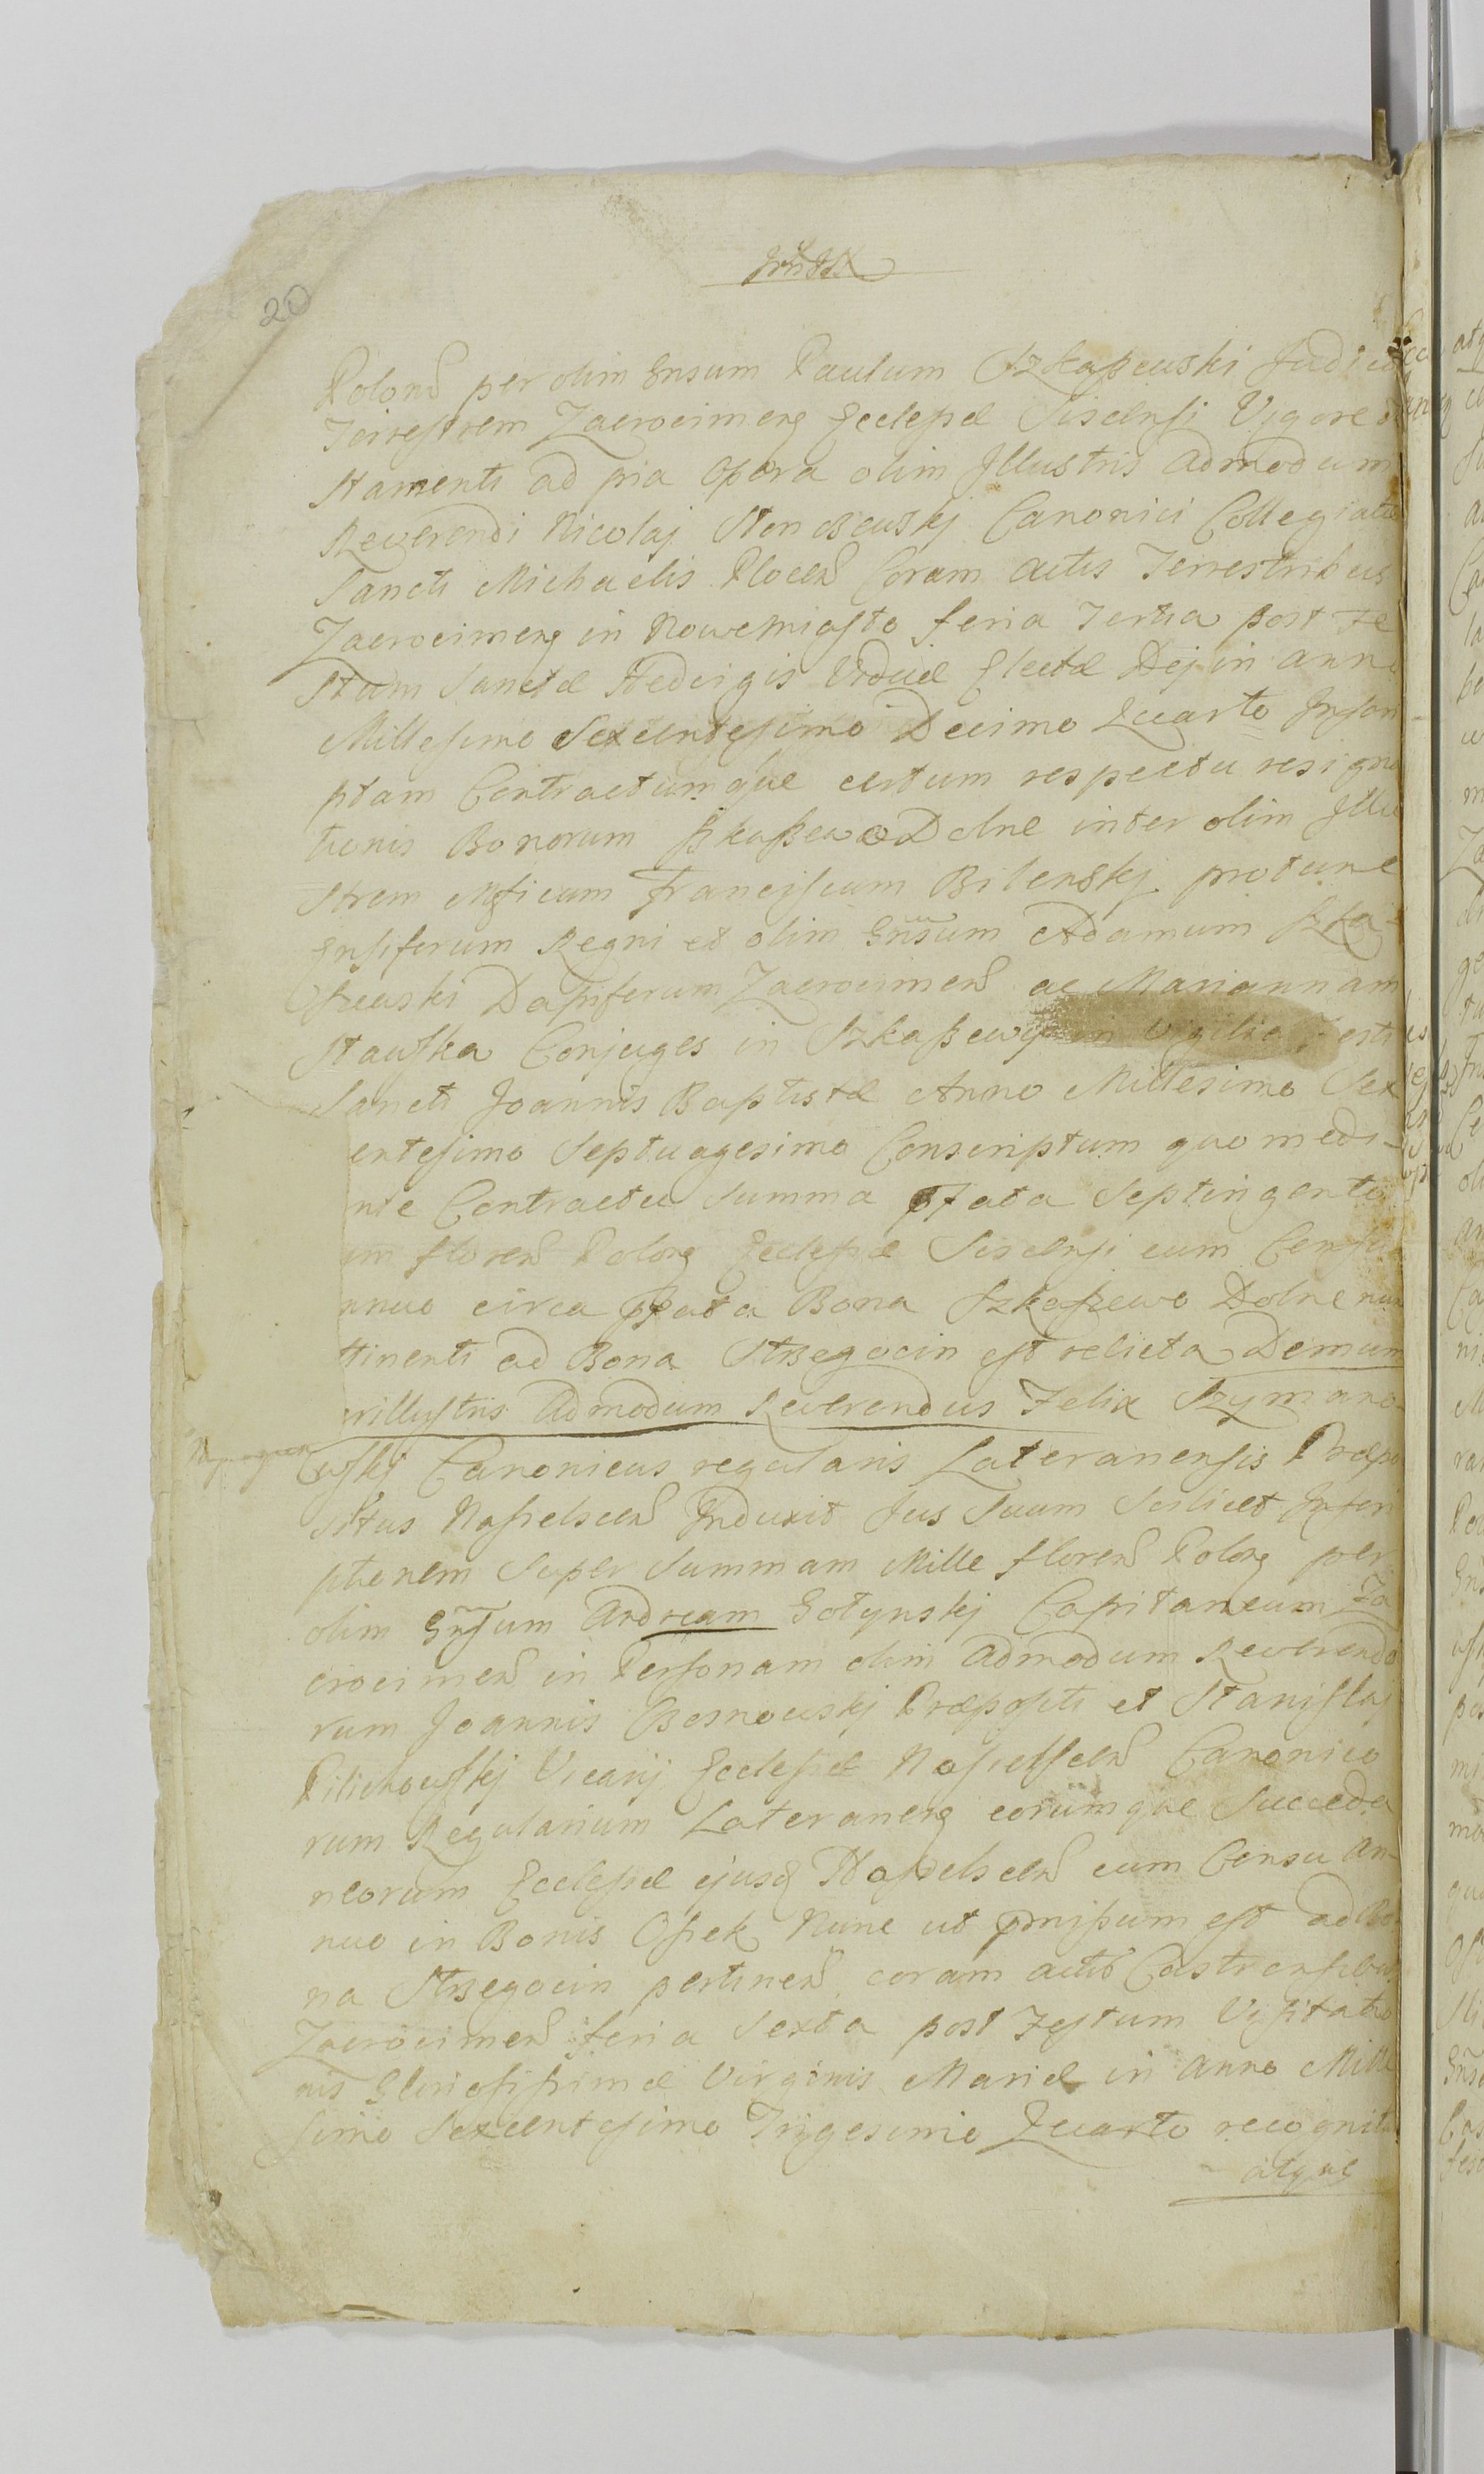 20
Polonẽ per olim Gnsum Paulum Szkaßewski Judicem
Terrestrem Zacrocimeng Ecclesiæ Siscensi Vigore
stamenti ad pia Opera olim Illustris admodum
Reverendi Nicolaj Canonici Collegiatæ
Sancti Michaelis Plocen Coram actis Terrestribus
Zacrocimeng in Nowemiasto feria Tertia post Fe
stum Sanctæ Hedvigis Viduæ Electæ Dej in anno
Millesimo Sexcentesimo Decimo Quarto Inscri
ptam Contractumque certum respectu resigna
tionis Bonorum Szkaßewo Dolne inter olim Illu
strem Mficum Franciscum Bilenskj protunc
Ensiferum Regni et olim Gnsum Adamum Szka-
ßewski Dapiferum Zacrocimen ac Mariannam
Conjuges in Szkaßewo in Vigilia Festi
Sancti Joannis Baptistæ Anno Millesimo Sex
entesimo Septuagesimo Conscriptum quo medi-
nte Contractu Summa pfata Septingento
um floren Polong Ecclesiæ Siscensi cum Censu
nnuo circa pfata Bona Szkaßewo Dolne nun
ttinenti ad Bona Strzegocin est relicta Demum
rillustris Admodum Reverendus Felix Szymano-
wskj Canonicus regularis Lateranensis Præpo
situs Nasielscen Induxit Jus Suum Scilicet Inscri
ptionem Super Summam Mille floren Polong per
olim Gnsum Andream Gotynskj Capitaneum Za
crocimen in Personam olim Admodum Reverendo
rum Joannis Præpositi et Stanislaj
Pilichowskj Vicarij Ecclesiæ Nasielscen Canonico
rum Regularium Lateraneng eorumque Succeda
neorum Ecclesiæ ejusq Nasielscen cum Censu an-
nuo in Bonis Osiek Nunc ut pmißum est ad Bo
na Strzegocin pertinen coram actis Castrensibus
Zacrocimen feria Sexta post Festum Visitatio
nis Gloriosissimæ Virginis Mariæ in Anno Mille
simo Sexcentesimo Trigesimo Quarto recognitam
atque